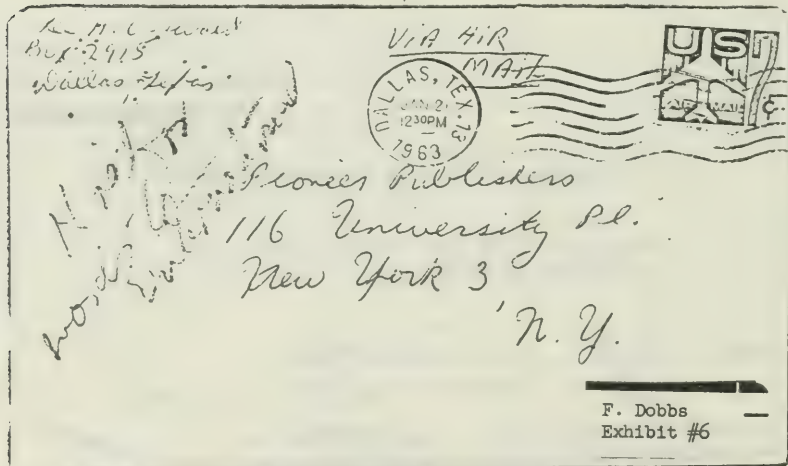 Box 2915
Dallas, Texas
VIA AIR
MAIL
DALLAS, TEX. 13
JAN 2
1230PM
1963
US
AIR MAIL
Pioneer Publishers
116 University Pl.
New York 3
N. Y.
F. Dobbs
Exhibit #6